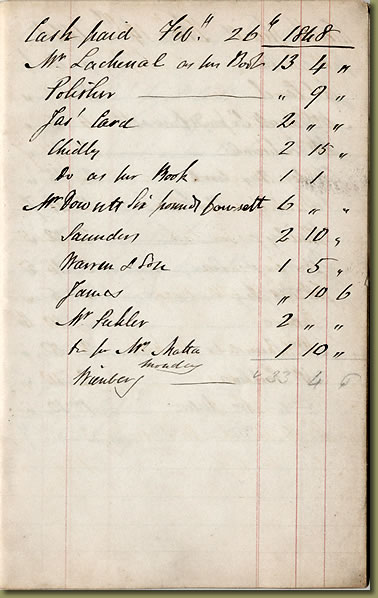 Cash paid Feby. 26th 1848
Mr Lachenal as per Book 13 4 "
Polisher " 9 "
Jas Card 2 " "
Chidly 2 15 "
Do as per Book. 1 1
Mr Dowett Six pounds 6 " "
Saunders 2 10 "
Warren & Son 1 5 "
James " 10 6
Mr Pichler 2 " "
Do for Mr. Matta 1 10 "
Monday
Wienberg 33 4 6